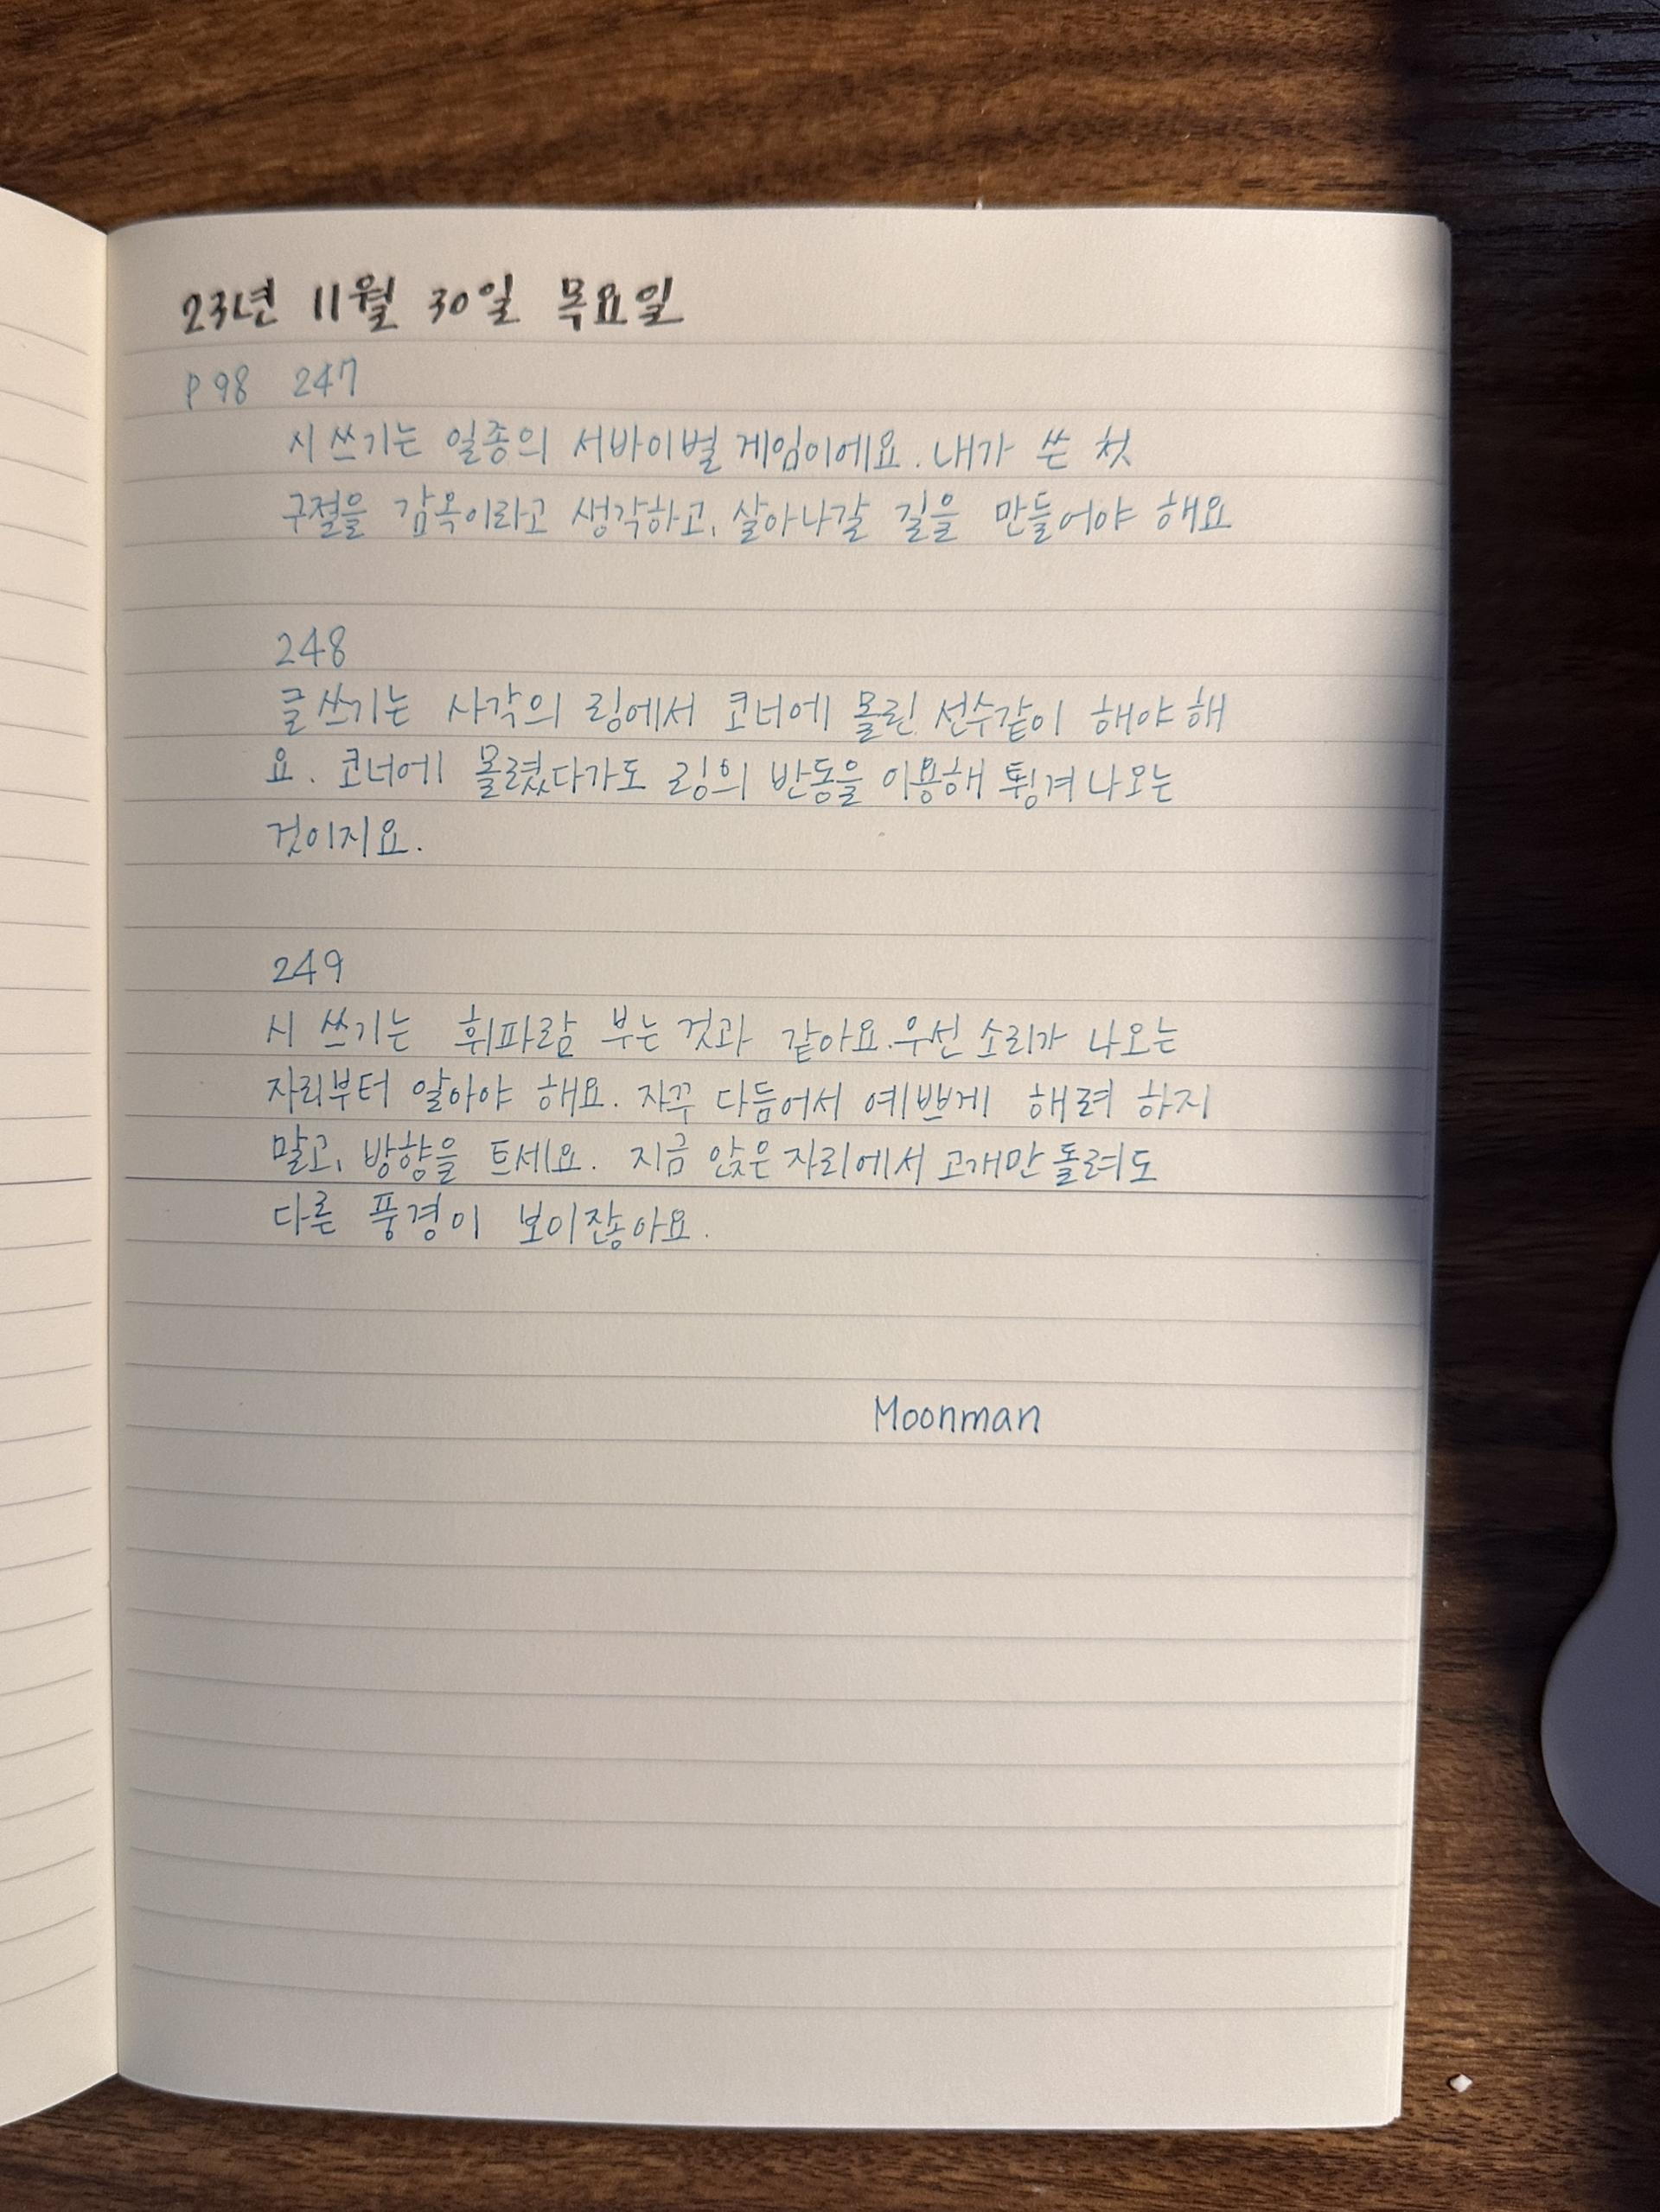 23년 11월 30일 목요일
P 98 247
시 쓰기는 일종의 서바이벌 게임이에요. 내가 쓴 첫
구절을 감옥이라고 생각하고, 살아나갈 길을 만들어야 해요
248
글쓰기는 사각의 링에서 코너에 몰린 선수같이 해야 해
요. 코너에 몰렸다가도 링의 반동을 이용해 튕겨 나오는
것이지요.
249
시 쓰기는 휘파람 부는 것과 같아요. 우선 소리가 나오는
자리부터 알아야 해요. 자꾸 다듬어서 예쁘게 해려 하지
말고, 방향을 트세요. 지금 앉은 자리에서 고개만 돌려도
다른 풍경이 보이잖아요.
Moonman